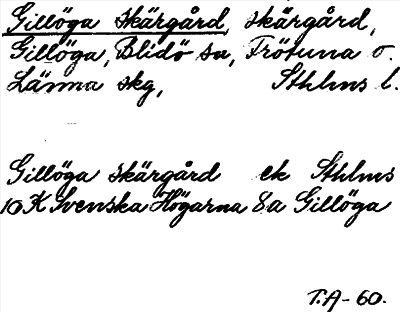 Gillöga skärgård, skärgård,
Gillöga, Blidö sn, Frötuna o.
Länna skg, Sthlms l.
Gillöga skärgård ek Sthlms
10K Svenska Högarna 8a Gillöga
T.A-60.